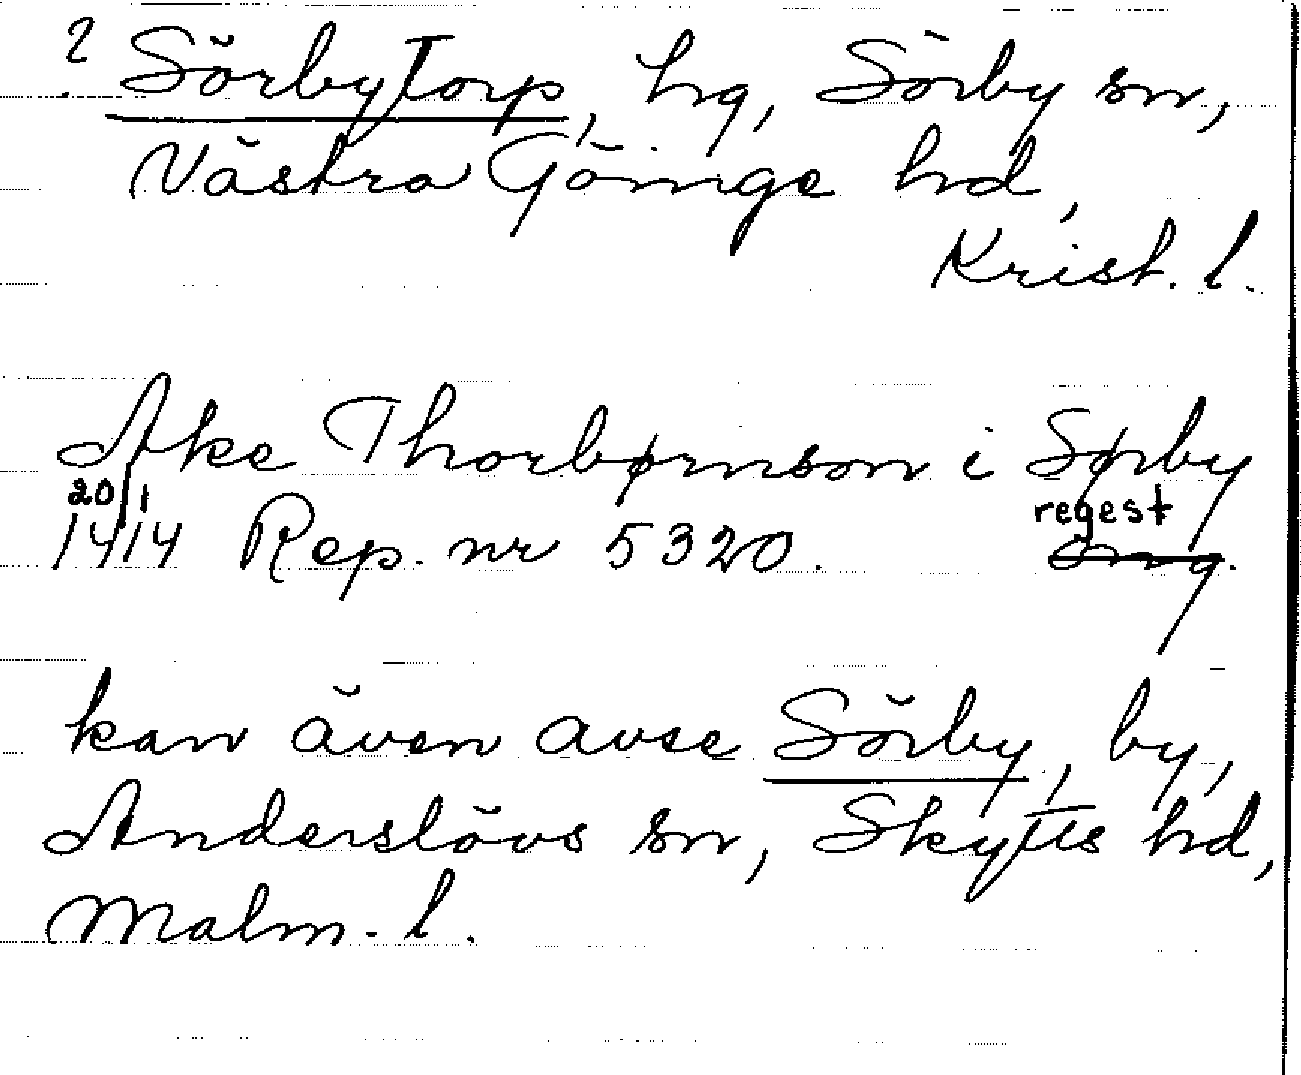 ? Sörbytorp, hg, Sörby sn,
Västra Göinge hd,
Krist. l.
Ake Thorbørnson i Sørby
20/1 regest
1414 Rep. nr 5320.
kan även avse Sörby, by,
Anderslövs sn, Skytts hd,
Malm. l.